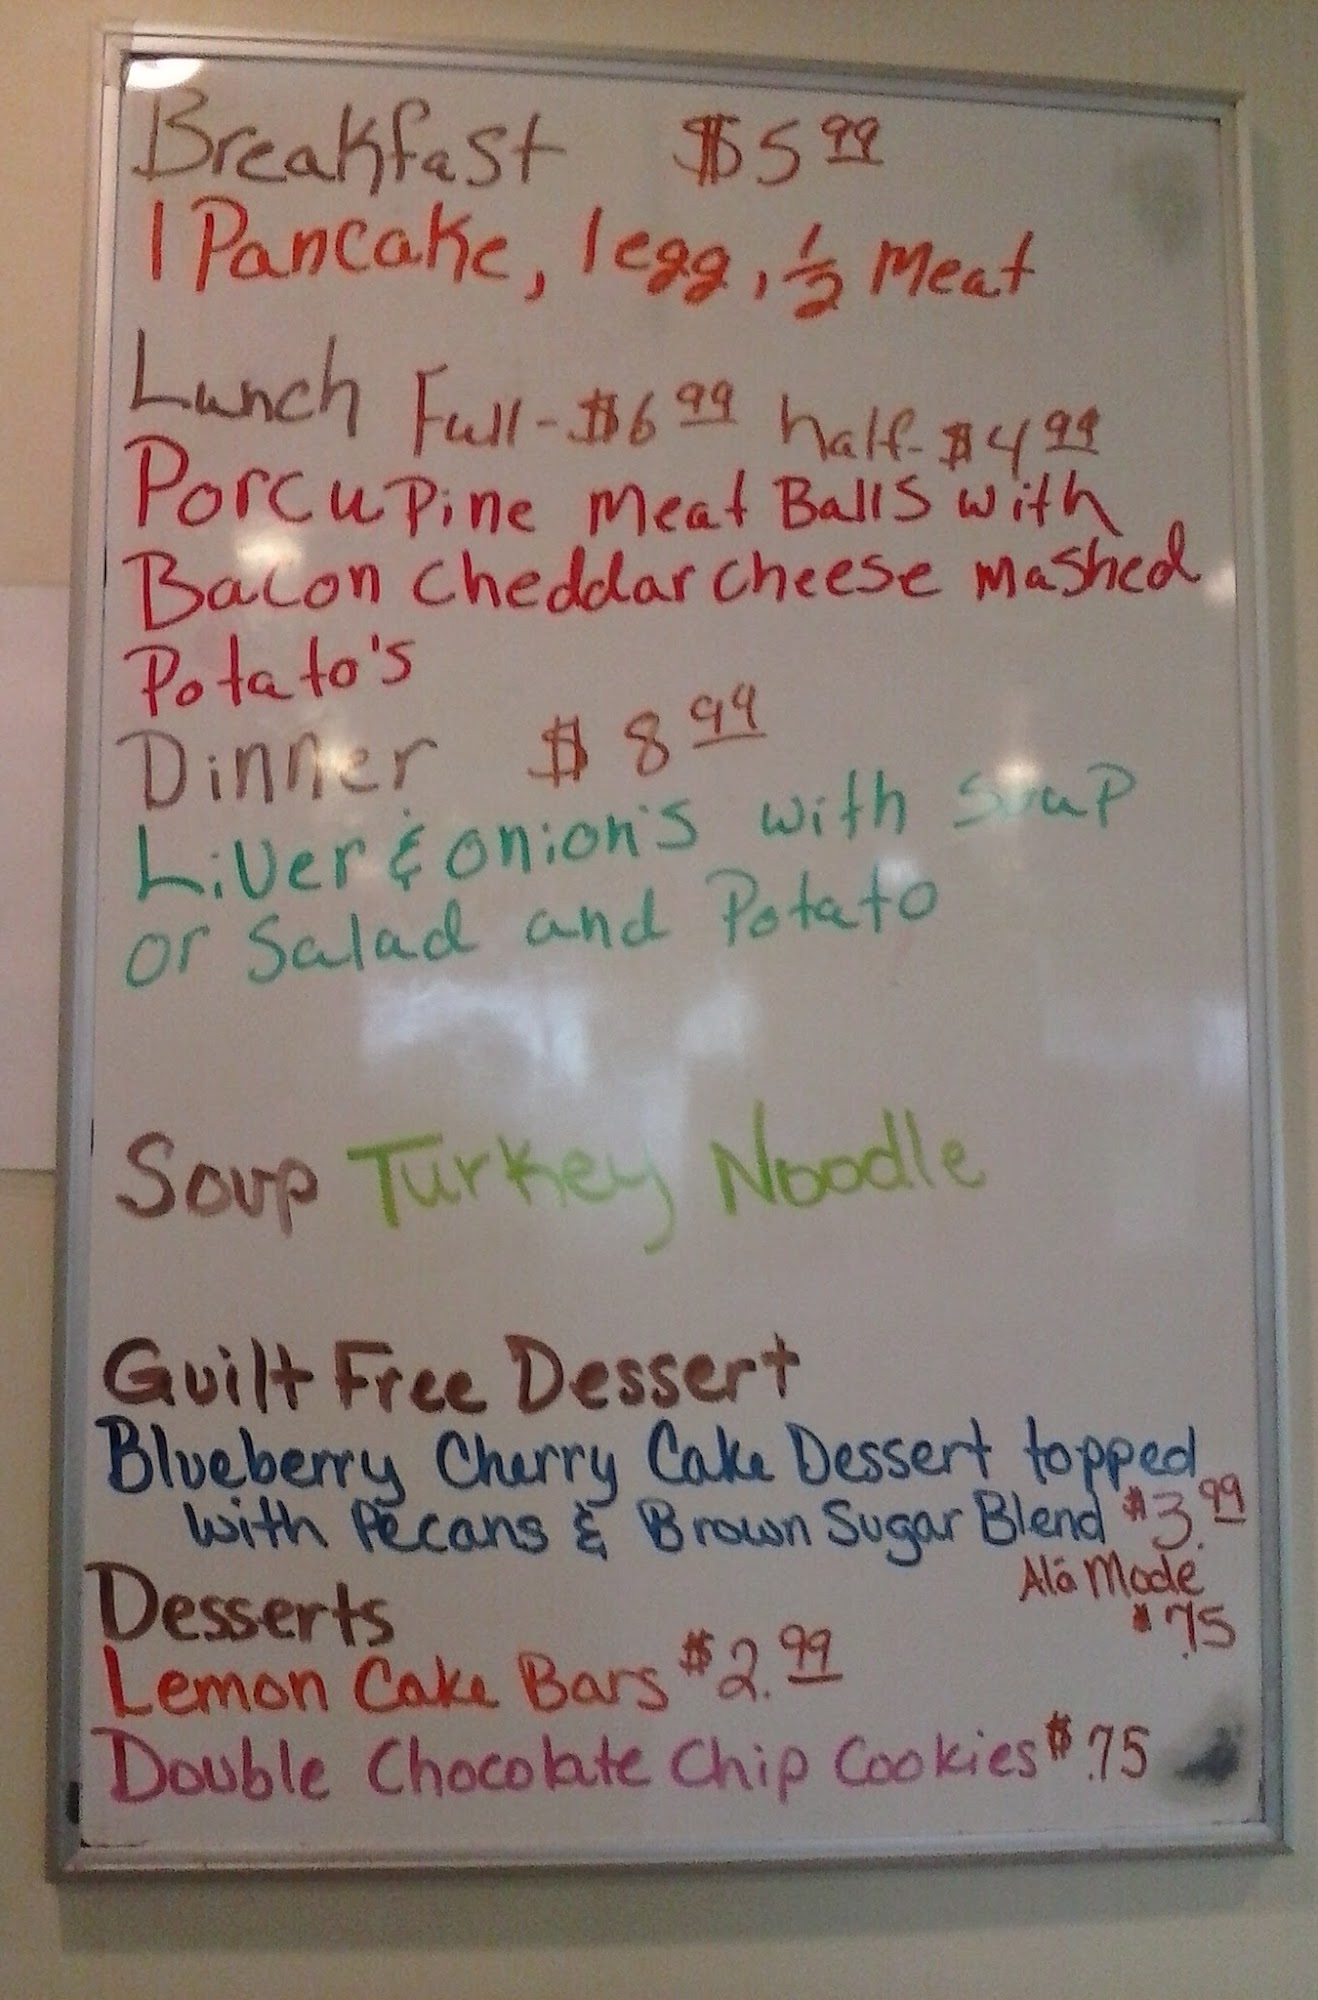 Breakfast $5 99
1 Pancake, 1 egg, 1/2 Meat
Lunch Full-$6 99 half-$4 99
Porcupine Meat Balls with
Bacon cheddar cheese mashed
Potato's
Dinner $8 99
Liver & onion's with soup
or Salad and Potato
Soup Turkey Noodle
Guilt Free Dessert
Blueberry Cherry Cake Dessert topped
with Pecans & Brown Sugar Blend $3.99
Alá Mode
$.75
Desserts
Lemon Cake Bars $2.99
Double Chocolate Chip Cookies $.75